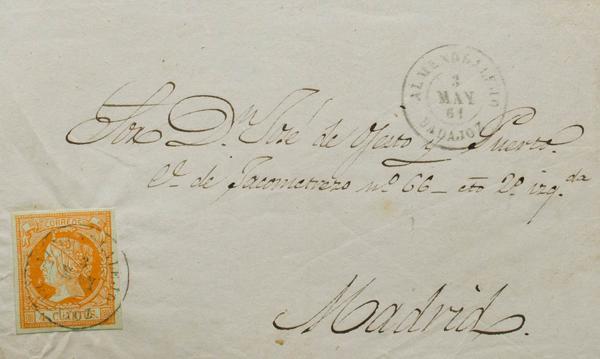 ALMENDRALEJO
3
MAY
61
BADAJOZ
Sor. Dn. José de y Puerto.
Ce. de Jacometrezo no. 66 - cto 2o. izqda.
Madrid.
CORREOS
4 CUARTOS